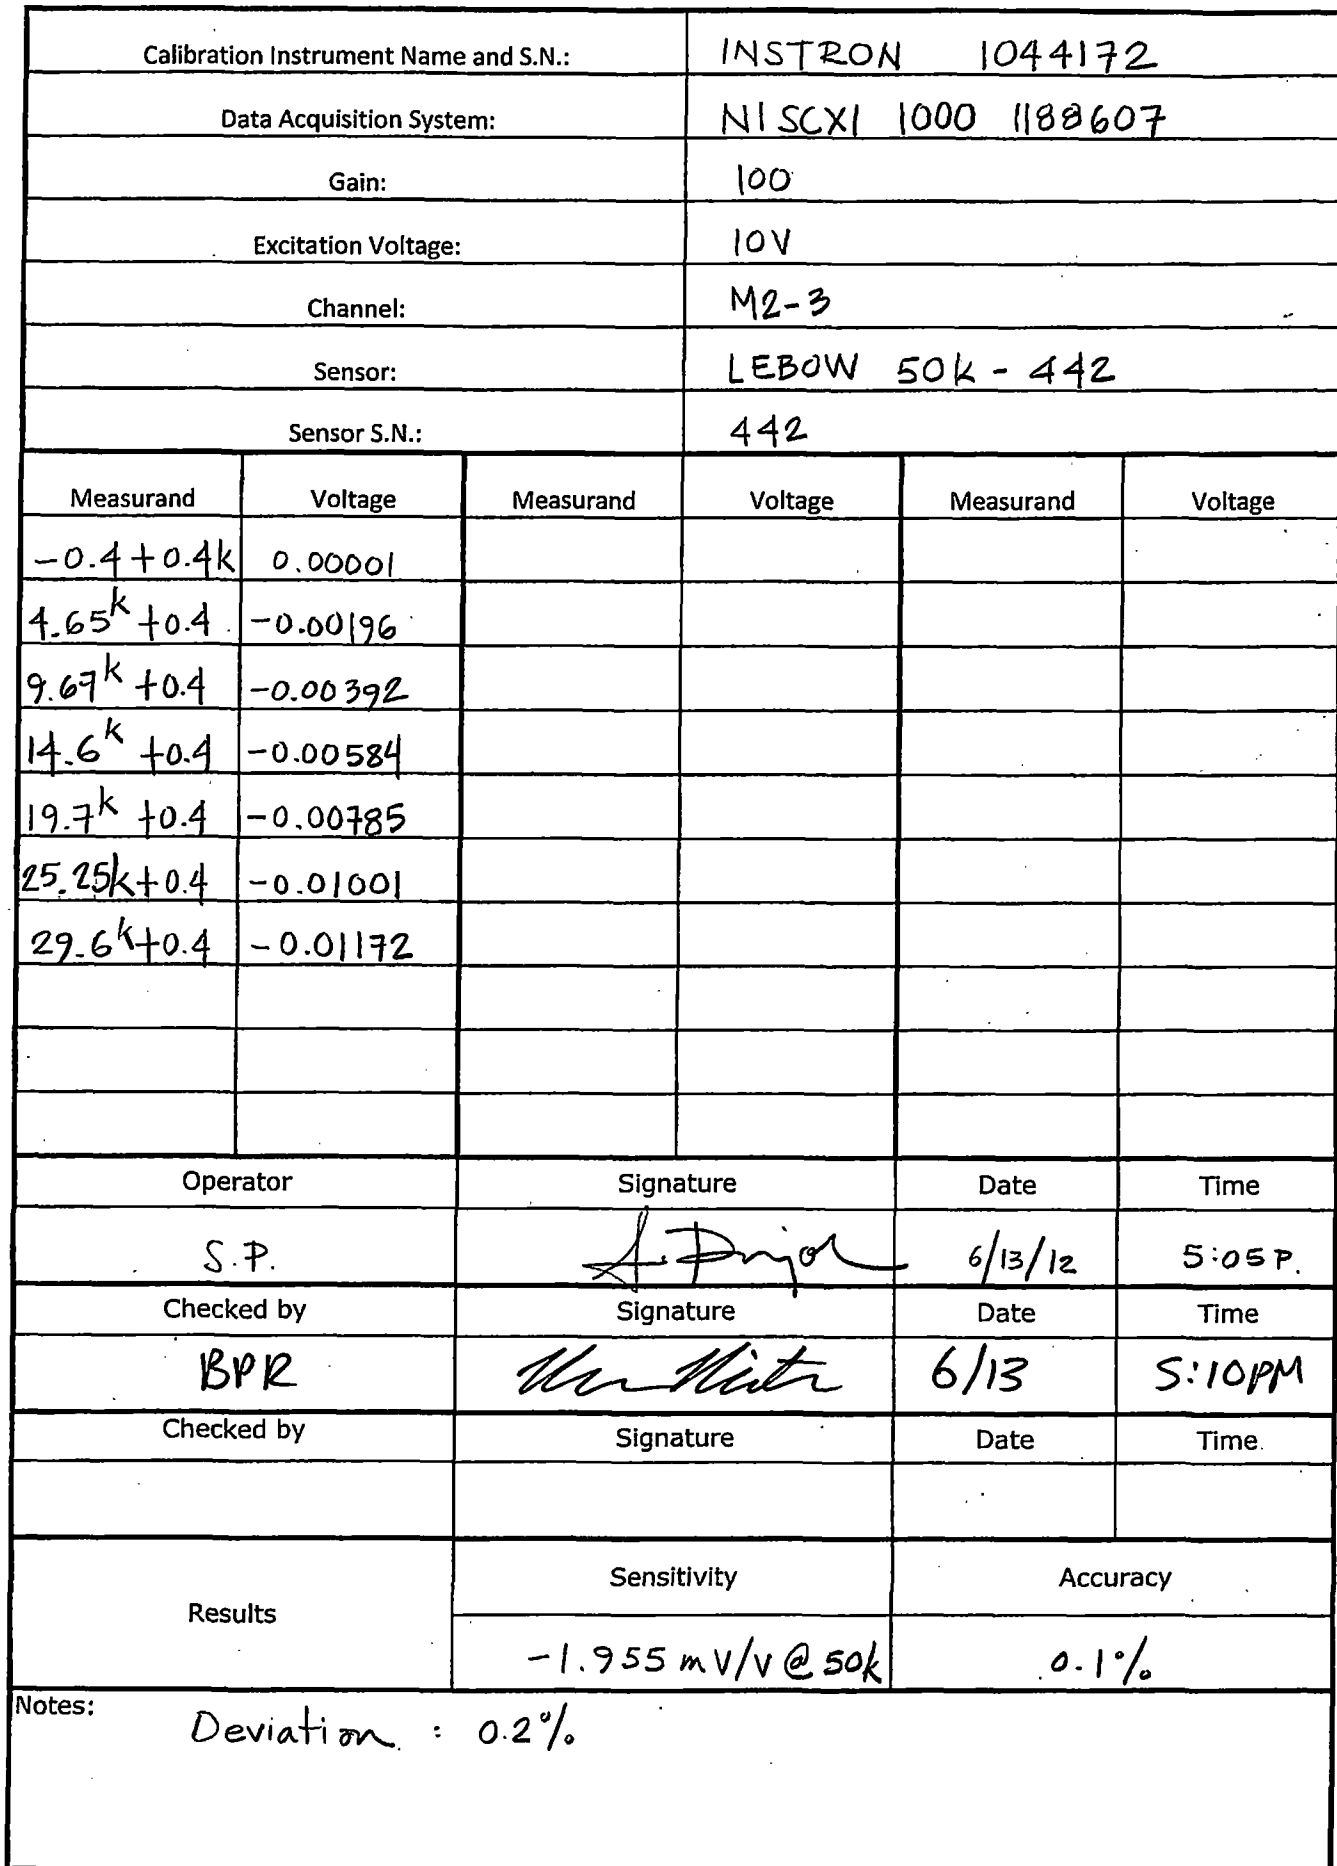 Calibration Instrument Name and S.N.: INSTRON 1044172
Data Acquisition System: NI SCXI 1000 1188607
Gain: 100
Excitation Voltage: 10V
Channel: M2-3
Sensor: LEBOW 50k - 442
Sensor S.N.: 442
Measurand Voltage Measurand Voltage Measurand Voltage
-0.4+0.4k 0.00001
4.65k +0.4 -0.00196
9.67k +0.4 -0.00392
14.6k +0.4 -0.00584
19.7k +0.4 -0.00785
25.25k+0.4 -0.01001
29.6k+0.4 -0.01172
Operator Signature Date Time
S.P. 6/13/12 5:05 P.
Checked by Signature Date Time
BPR 6/13 5:10PM
Checked by Signature Date Time
Results Sensitivity Accuracy
-1.955 mV/V @ 50k 0.1%
Notes: Deviation : 0.2%